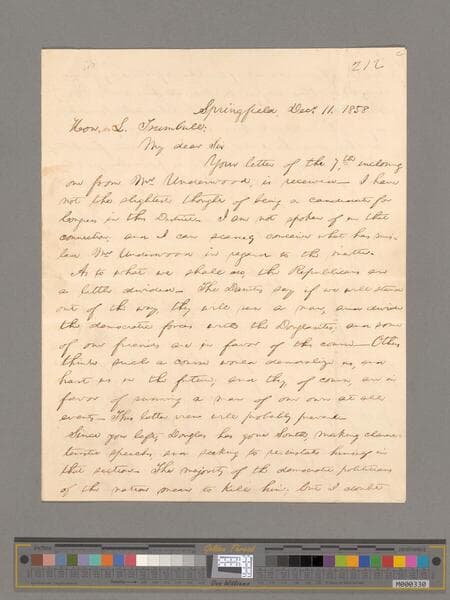 212
Springfield Decr 11. 1858
Hon. L. Trumbull:
My dear Sir
Your letter of the 7th inclosing
one from Mr Underwood, is received. I have
not the slightest thought of being a candidate for
Congress in this District. I am not spoken of in that
connection; and I can scarcely conceive what has mis-
led Mr Underwood in regard to the matter.
As to what we shall do, the Republicans are
a little divided. The Danites say if we will stand
out of the way, they will run a man, and divide
the democratic forces with the Douglasites; and some
of our friends are in favor of this course. Others
think such a course would demoralize us, and
hurt us in the future; and they, of course, are in
favor of running a man of our own at all
events. This latter view will probably prevail.
Since you left, Douglas has gone South, making charac-
teristic speeches, and seeking to re-instate himself in
that section. The majority of the democratic politicians
of the nation mean to kill him; but I doubt
inches
centimeters
Golden Thread
Don Williams
M000330